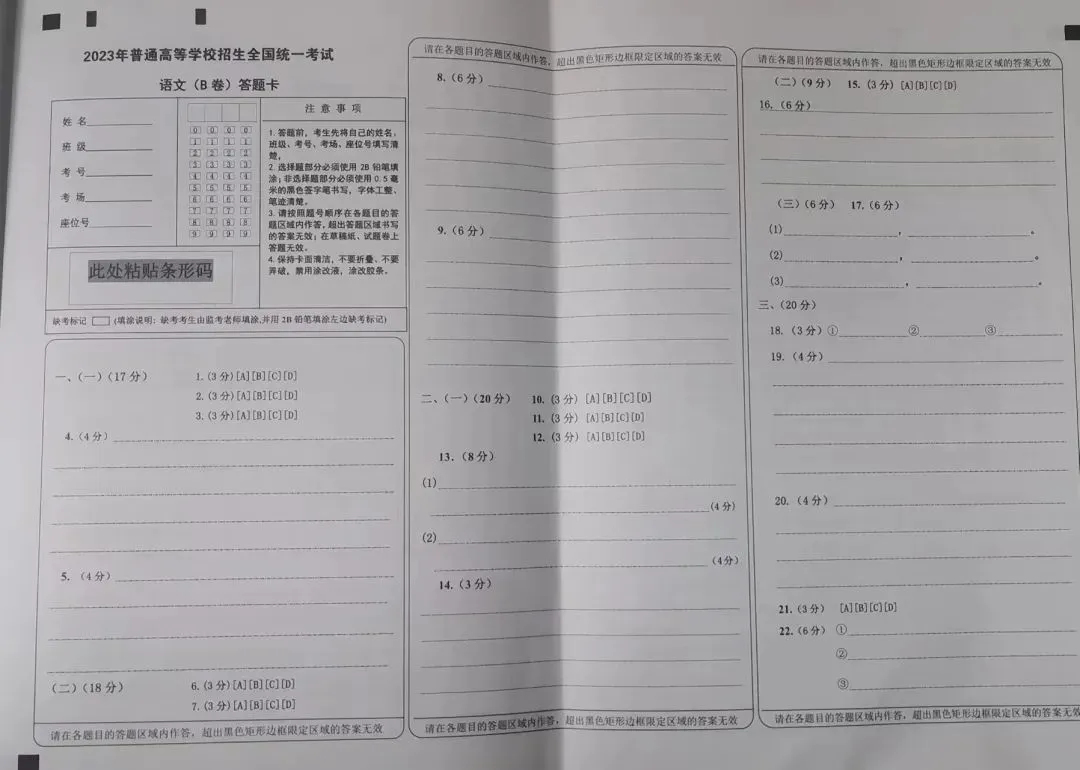 2023年普通高等学校招生全国统一考试
语文（B 卷）答题卡
姓 名
班 级
考 号
考 场
座位号
0 0 0 0
1 1 1 1
2 2 2 2
3 3 3 3
4 4 4 4
5 5 5 5
6 6 6 6
7 7 7 7
8 8 8 8
9 9 9 9
注 意 事 项
1. 答题前，考生先将自己的姓名、
班级、考号、考场、座位号填写清
楚。
2. 选择题部分必须使用 2B 铅笔填
涂；非选择题部分必须使用 0.5 毫
米的黑色签字笔书写，字体工整、
笔迹清楚。
3. 请按照题号顺序在各题目的答
题区域内作答，超出答题区域书写
的答案无效；在草稿纸、试题卷上
答题无效。
4. 保持卡面清洁，不要折叠、不要
弄破，禁用涂改液，涂改胶条。
此处粘贴条形码
缺考标记 (填涂说明：缺考考生由监考老师填涂,并用 2B 铅笔填涂左边缺考标记)
一、（一）（17 分） 1.（3 分）[A][B][C][D]
2.（3 分）[A][B][C][D]
3.（3 分）[A][B][C][D]
4.（4 分）
5. （4 分）
（二）（18 分） 6.（3 分）[A][B][C][D]
7.（3 分）[A][B][C][D]
请在各题目的答题区域内作答，超出黑色矩形边框限定区域的答案无效
请在各题目的答题区域内作答，超出黑色矩形边框限定区域的答案无效
8.（6 分）
9.（6 分）
二、（一）（20 分） 10.（3 分）[A][B][C][D]
11.（3 分）[A][B][C][D]
12.（3 分）[A][B][C][D]
13.（8 分）
(1)
(4 分)
(2)
(4分)
14.（3 分）
请在各题目的答题区域内作答，超出黑色矩形边框限定区域的答案无效
请在各题目的答题区域内作答，超出黑色矩形边框限定区域的答案无效
（二）（9 分） 15.（3 分）[A][B][C][D]
16.（6 分）
（三）（6 分） 17.（6 分）
(1) ， 。
(2) ， 。
(3) ， 。
三、（20 分）
18.（3 分）① ② ③
19.（4 分）
20.（4 分）
21.（3 分） [A][B][C][D]
22.（6 分） ①
②
③
请在各题目的答题区域内作答，超出黑色矩形边框限定区域的答案无效